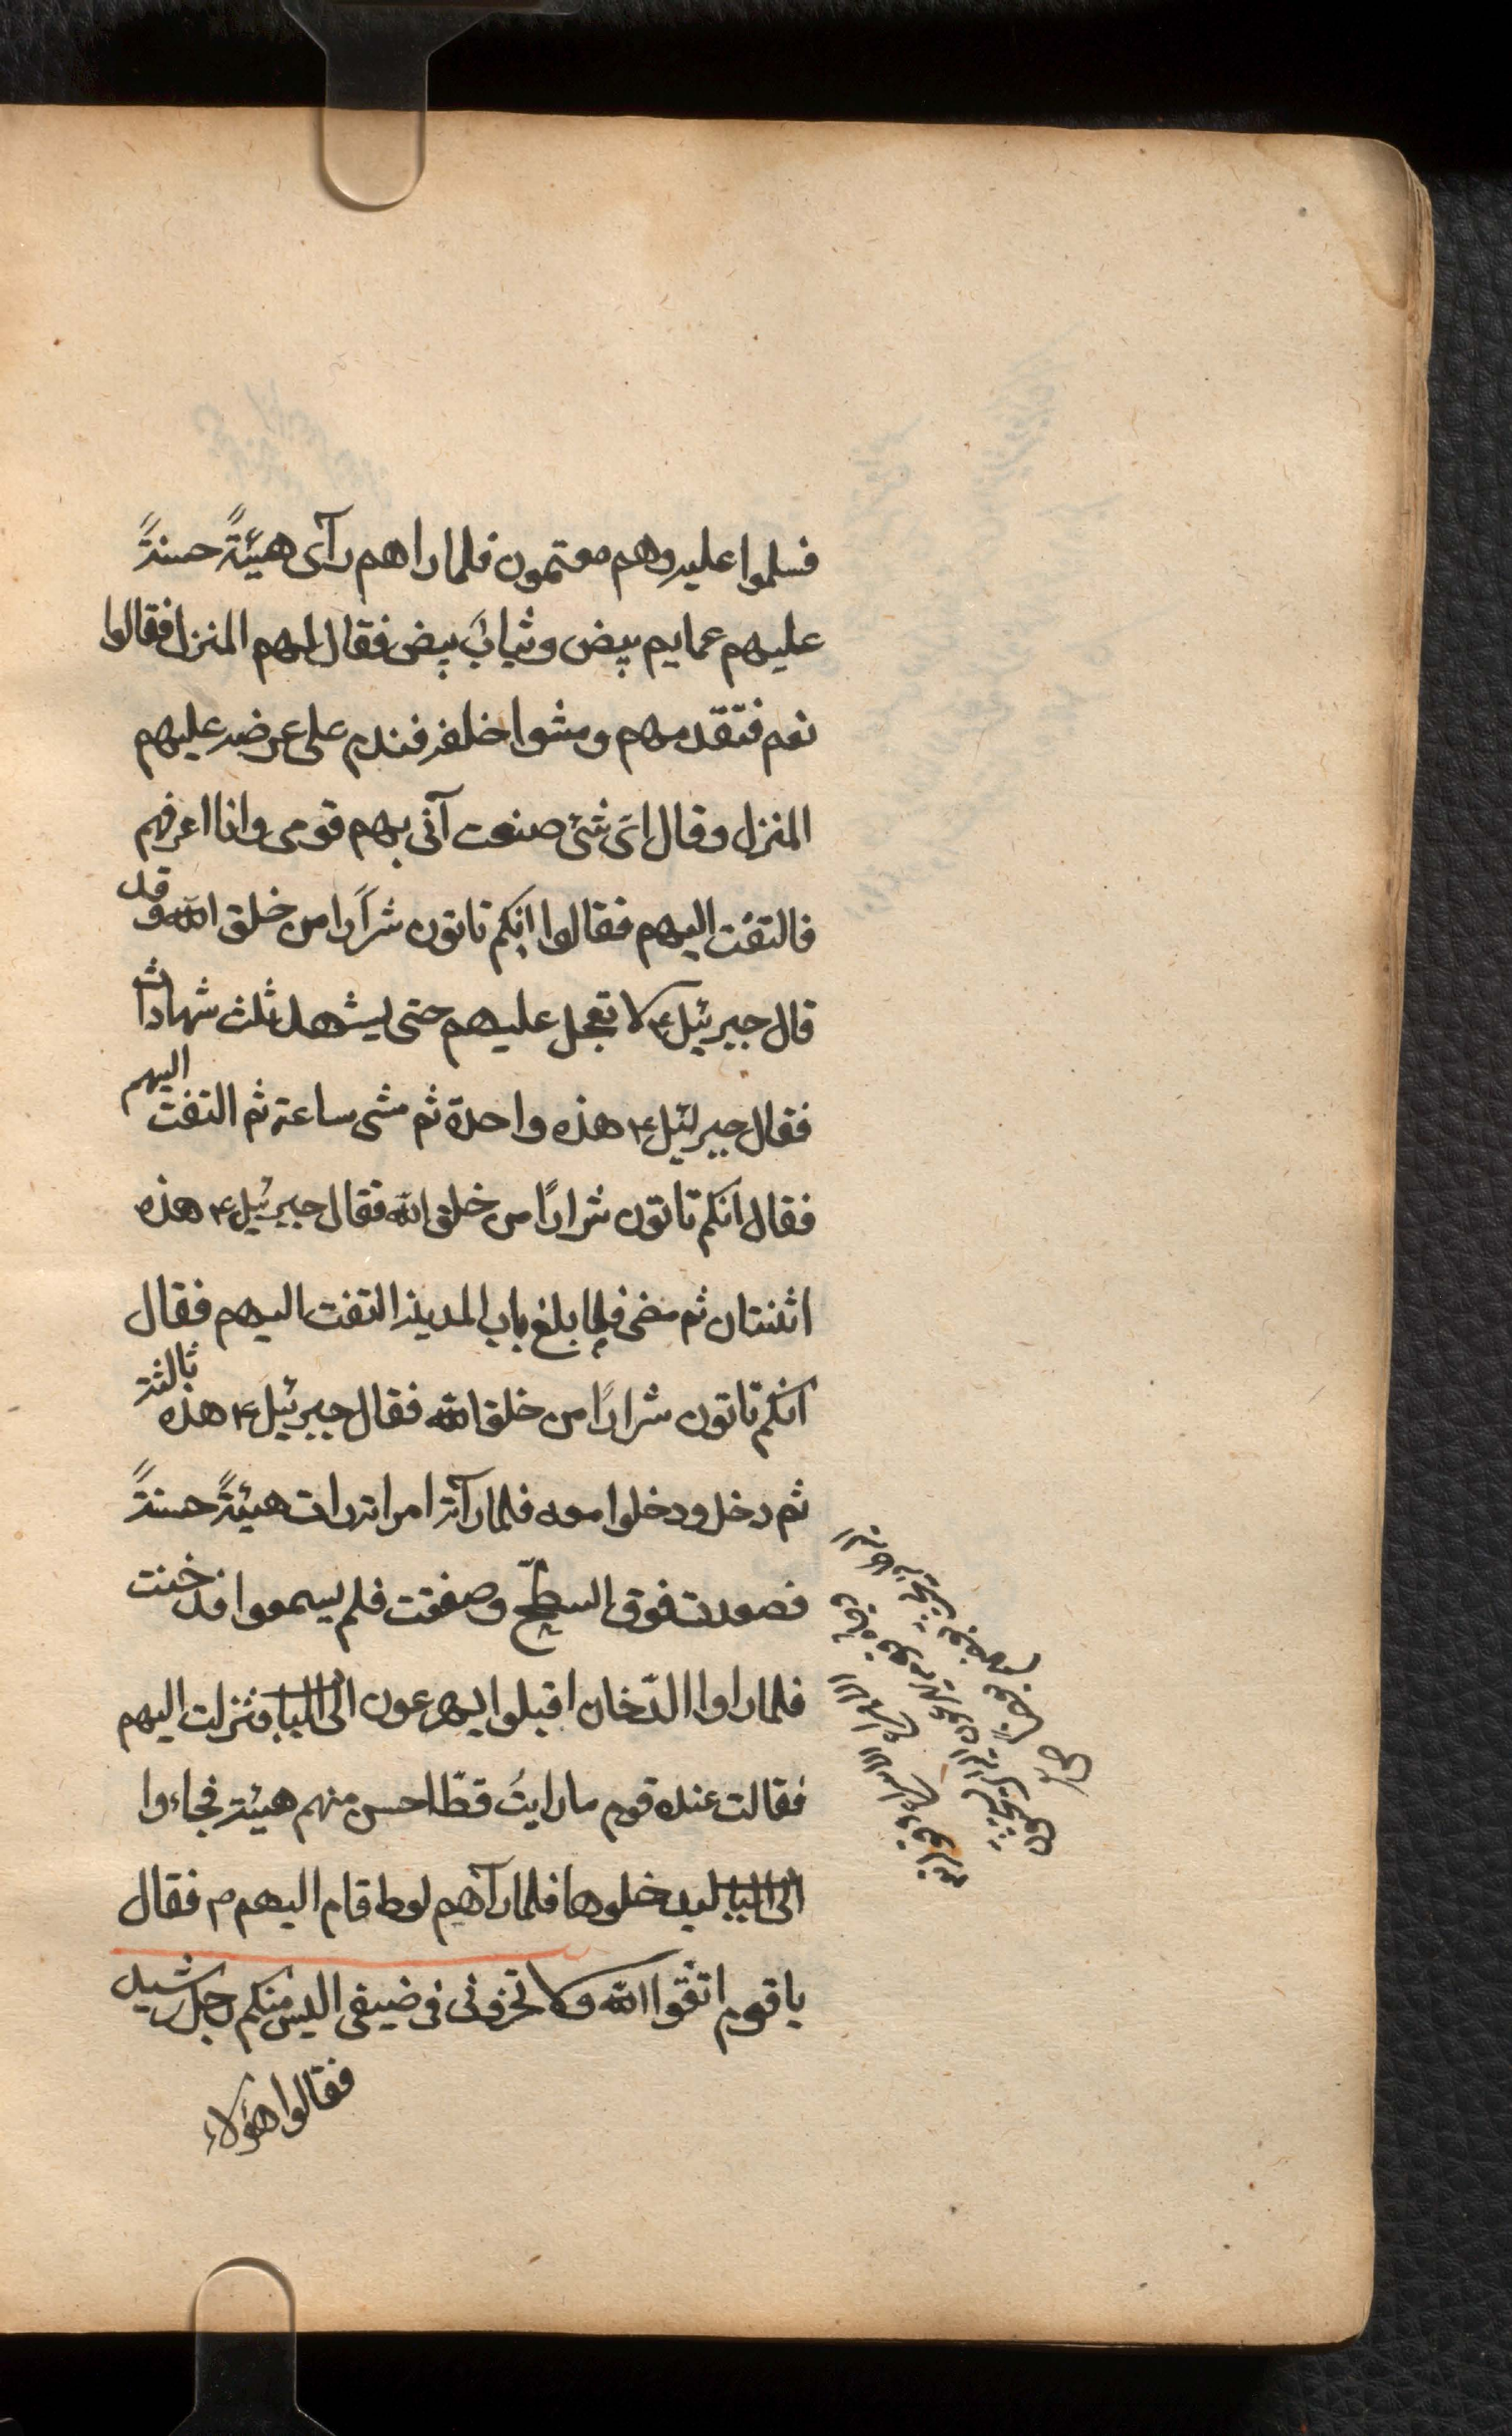 فسلموا عليه وهم معتمون فلما راهم رآى هيئةً حسنةً
عليهم عمايم بيض وثيابٌ بيض فقال لهم المنزل فقالوا
نعم فتقدمهم ومشوا خلفه فندم على عرضه عليهم
المنزل وقال اىّ شئ صنعت آتى بهم قومى وانا اعرفهم
فالتفت اليهم فقالوا انكم تاتون شرارًا من خلق الله وقد
قال جبرئيل ع لا تعجل عليهم حتى يشهد ثلث شهادات
فقال جبرئيل ع هذه واحدة ثم مشى ساعة ثم التفت اليهم
فقال انكم تاتون شرارًا من خلق الله فقال جبرئيل ع هذه
اثنتان ثم مضى فلما بلغ باب المدينة التفت اليهم فقال
انكم تاتون شرارًا من خلق الله فقال جبرئيل ع هذه ثالثة
ثم دخل ودخلوا معه فلما رآته امراته رات هيئةً حسنةً
فصعدت فوق السطح وصفقت فلم يسمعوا فدخنت
فلما راوا الدّخان اقبلوا يهرعون الى الباب فنزلت اليهم
فقالت عنده قوم ما رايتُ قطّ احسن منهم هيئة فجاءوا
الى الباب ليدخلوها فلما رآهم لوط قام اليهم فقال
يا قوم اتقوا الله ولا تخزونى فى ضيفى اليس منكم رجل رشيد
فقالوا هؤلاء